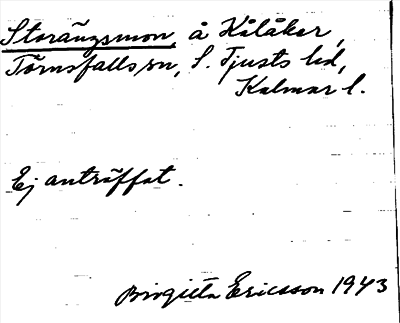 Storängsmon, å Kolåker,
Törnsfalls sn, S. Tjusts hd,
Kalmar l.
Ej anträffat.
Birgitta Ericsson 1943